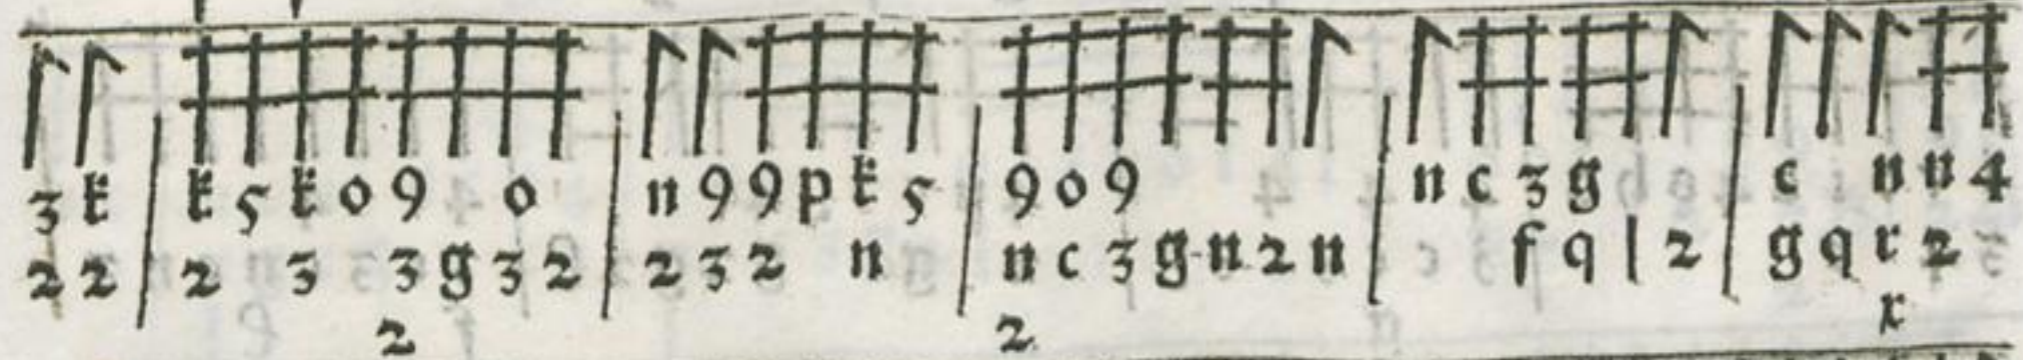 3 k | k 5 k o 9 o | n 9 9 p k 5 | 9 o 9 | n c 3 g | c n n 4
2 2 | 2 3 3 g 3 2 | 2 3 2 n | n c 3 g n 2 n | f q l 2 | g q r 2
2 2 r